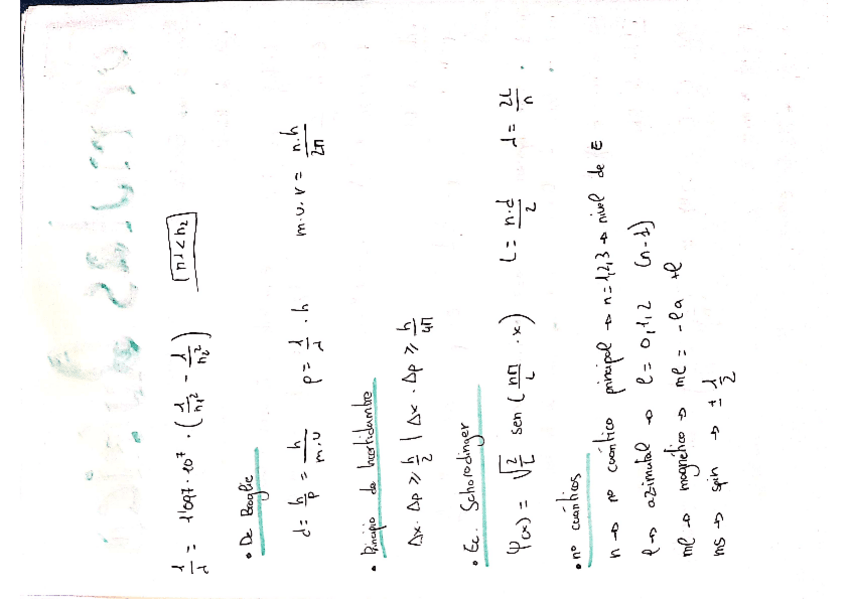 1/d = 1'097·10⁷ · (1/n₁² - 1/n₂²) n1<n2
• De Broglie
d = h/p = h/m·v p = 1/d · h m·v·r = n·h/2π
• Principio de Incertidumbre
Δx · Δp ≥ ħ/2 | Δx · Δp ≥ h/4π
• Ec. Schorodinger
Ψ(x) = √2/L sen (nπ/L · x) L = n·d/2 d = 2L/n
• nº cuánticos
n → nº cuántico principal → n=1,2,3 → nivel de E
l → azimutal → l = 0,1,2 (n-1)
ml → magnético → ml = -l a +l
ms → spin → ± 1/2